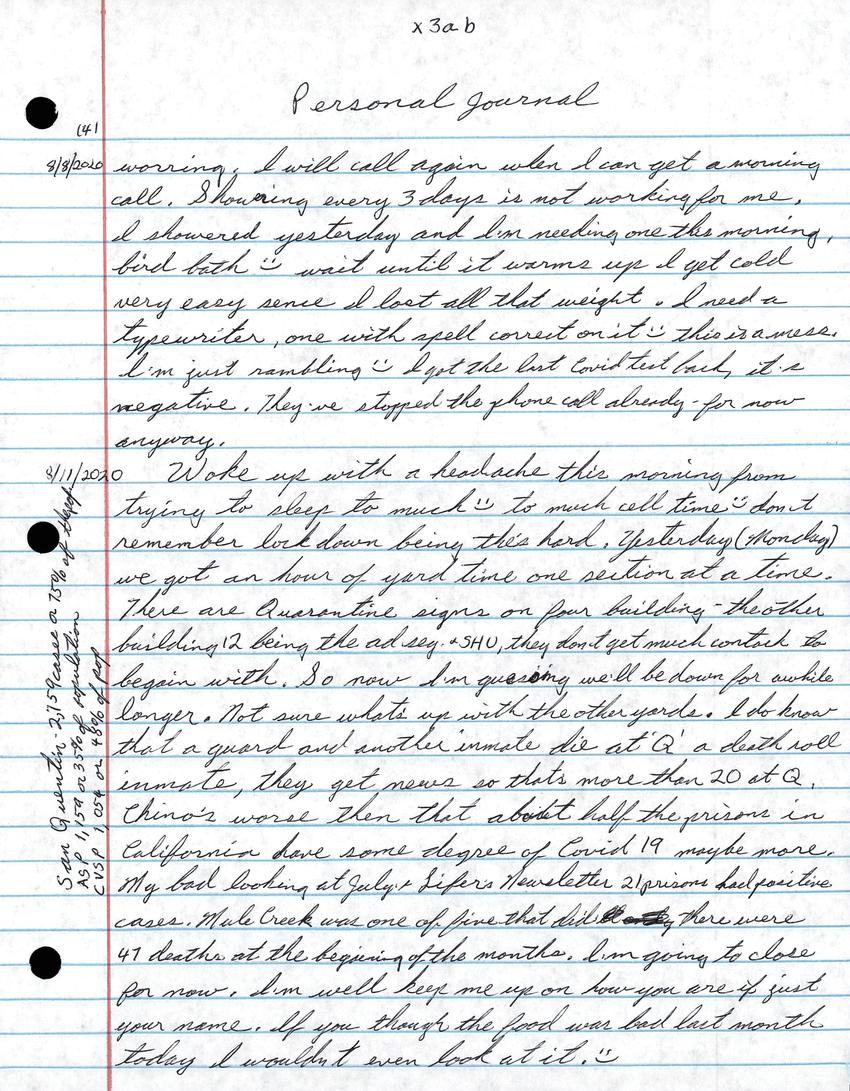 x3ab
Personal Journal
(4)
8/8/2020 worring. I will call again when I can get a morning
call. Showering every 3 days is not working for me.
I showered yesterday and I'm needing one this morning,
bird bath :) wait until it warms up I get cold
very easy sence I lost all that weight. I need a
typewriter, one with spell correct on it :) this is a mess.
I'm just rambling :) I got the last Covid test back, it's
negative. They've stopped the phone call already - for now
anyway.
8/11/2020 Woke up with a headache this morning from
trying to sleep to much :) to much cell time :) don't
remember lock down being this hard. Yesterday (Monday)
we got an hour of yard time one section at a time.
There are Quarantine signs on four building - the other
building 12 being the ad seg. + SHU, they don't get much contack to
begain with. So now I'm guesing we'll be down for awhile
longer. Not sure what's up with the other yards. I do know
that a guard and another inmate die at 'Q' a death roll
inmate, they get news so thats more than 20 at Q.
Chino's worse then that about half the prisons in
California have some degree of Covid 19 maybe more.
My bad looking at July's Lifer's Newsletter 21 prisons had positive
cases. Mule Creek was one of five that did there were
47 deaths at the begining of the months. I'm going to close
for now. I'm well keep me up on how you are if just
your name. If you though the food was bad last month
today I wouldn't even look at it. :)
San Quentin - 2,159 cases or 75% of thepop
ASP 1,159 or 35% of population
CVSP 1,054 or 48% of pop